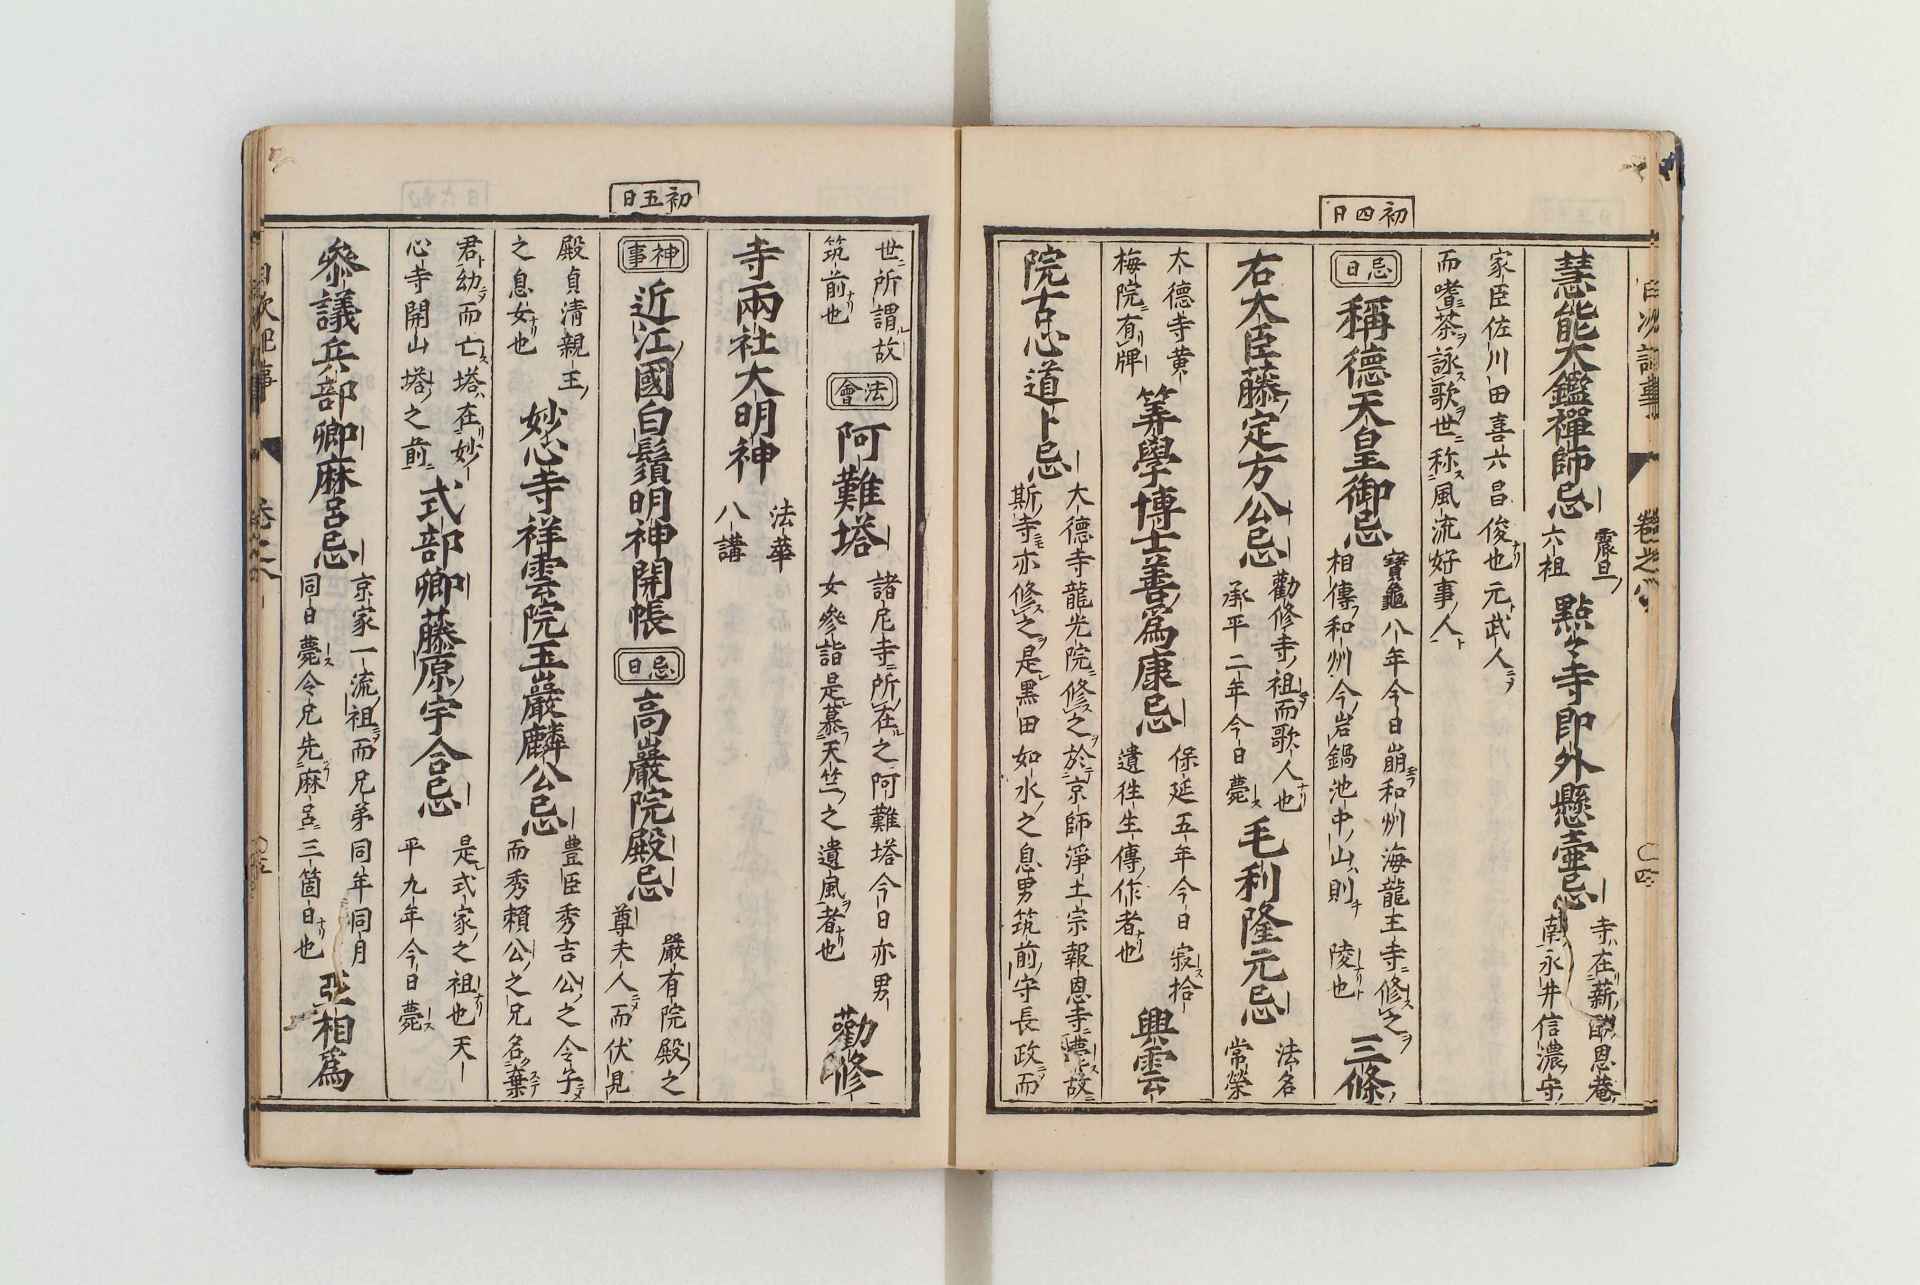 初四日
慧能大鑑禪師忌
震旦
六祖
點々寺即外懸壷忌
寺在薪酬恩菴
南永井信濃守
家臣佐川田喜六昌俊也元武人
而嗜茶詠歌世称風流好事人
忌日
稱德天皇御忌
寶龜八年今日崩和州海龍王寺修之
相傳和州今岩鍋池中山則陵也
三條
右大臣藤定方公忌
勸修寺祖而歌人也
承平二年今日薨
毛利隆元忌
法名
常榮
大德寺黄
梅院有牌
筭學博士善爲康忌
保延五年今日寂拾
遺徃生傳作者也
興雲
院古心道卜忌
大德寺龍光院修之於京師淨土宗報恩寺
斯寺亦修之是黑田如水之息男筑前守長政而
初五日
世所謂故
筑前也
法會
阿難塔
諸尼寺所在之阿難塔今日亦男
女參詣是慕天竺之遺風者也
勸修
寺兩社大明神
法華
八講
神事
近江國白鬚明神開帳
忌日
高巖院殿忌
嚴有院殿之
尊夫人而伏見
殿貞清親王
之息女也
妙心寺祥雲院玉巖麟公忌
豊臣秀吉公之令子
而秀賴公之兄名棄
君幼而亡塔在妙
心寺開山塔之前
式部卿藤原宇合忌
是式家之祖也天
平九年今日薨
參議兵部卿麻呂忌
京家一流祖而兄弟同年同月
同日薨令兄先麻呂三箇日也
亞相爲